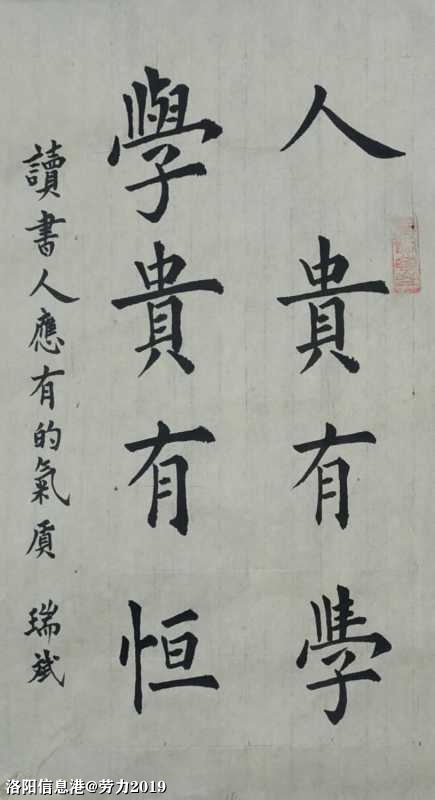 人貴有學
學貴有恒
讀書人應有的氣质 瑞斌
洛阳信息港@劳力2019